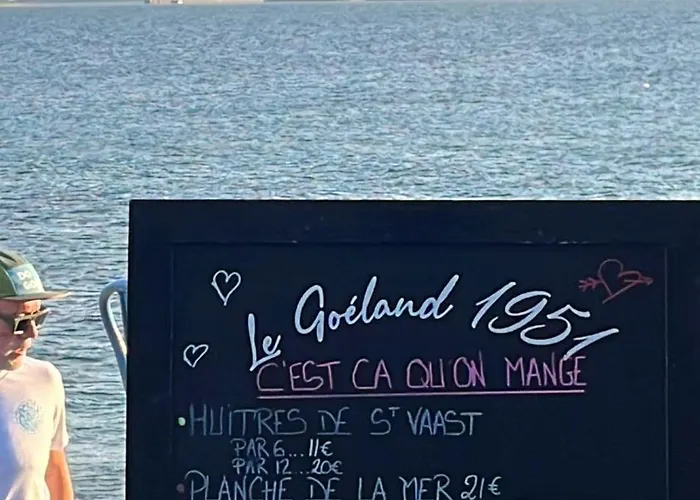 Le Goéland 1951
C'EST CA QU'ON MANGE
• HUITRES DE ST VAAST
PAR 6...11€
PAR 12...20€
• PLANCHE DE LA MER 21€